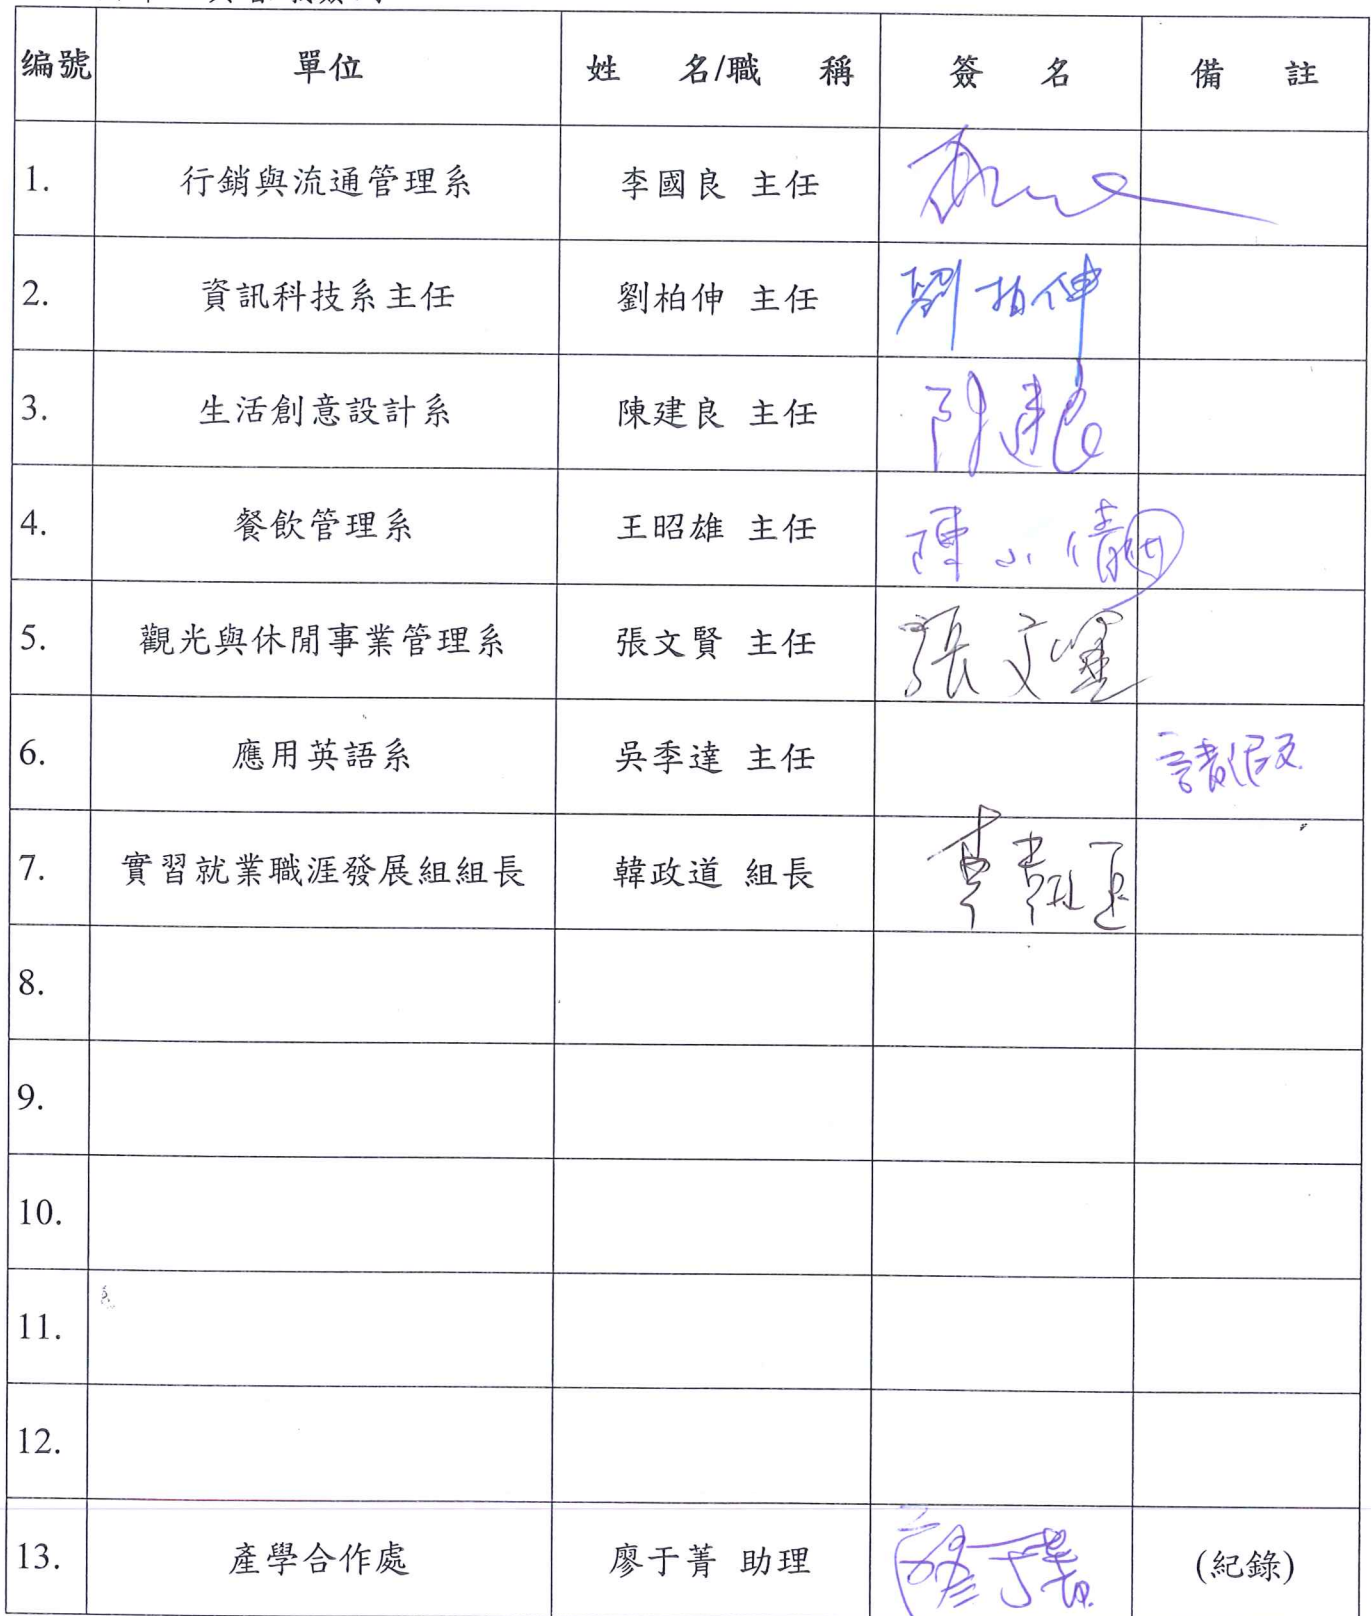 编號 單位 姓 名/職 稱 簽 名 備 註
1. 行銷與流通管理系 李國良 主任
2. 資訊科技系主任 劉柏伸 主任 劉柏伸
3. 生活創意設計系 陳建良 主任 陳建良
4. 餐飲管理系 王昭雄 主任 陳小倩
5. 觀光與休閒事業管理系 張文賢 主任 張文賢
6. 應用英語系 吳季達 主任 請假
7. 實習就業職涯發展組組長 韓政道 組長
8.
9.
10.
11.
12.
13. 產學合作處 廖于菁 助理 廖于菁 (紀錄)